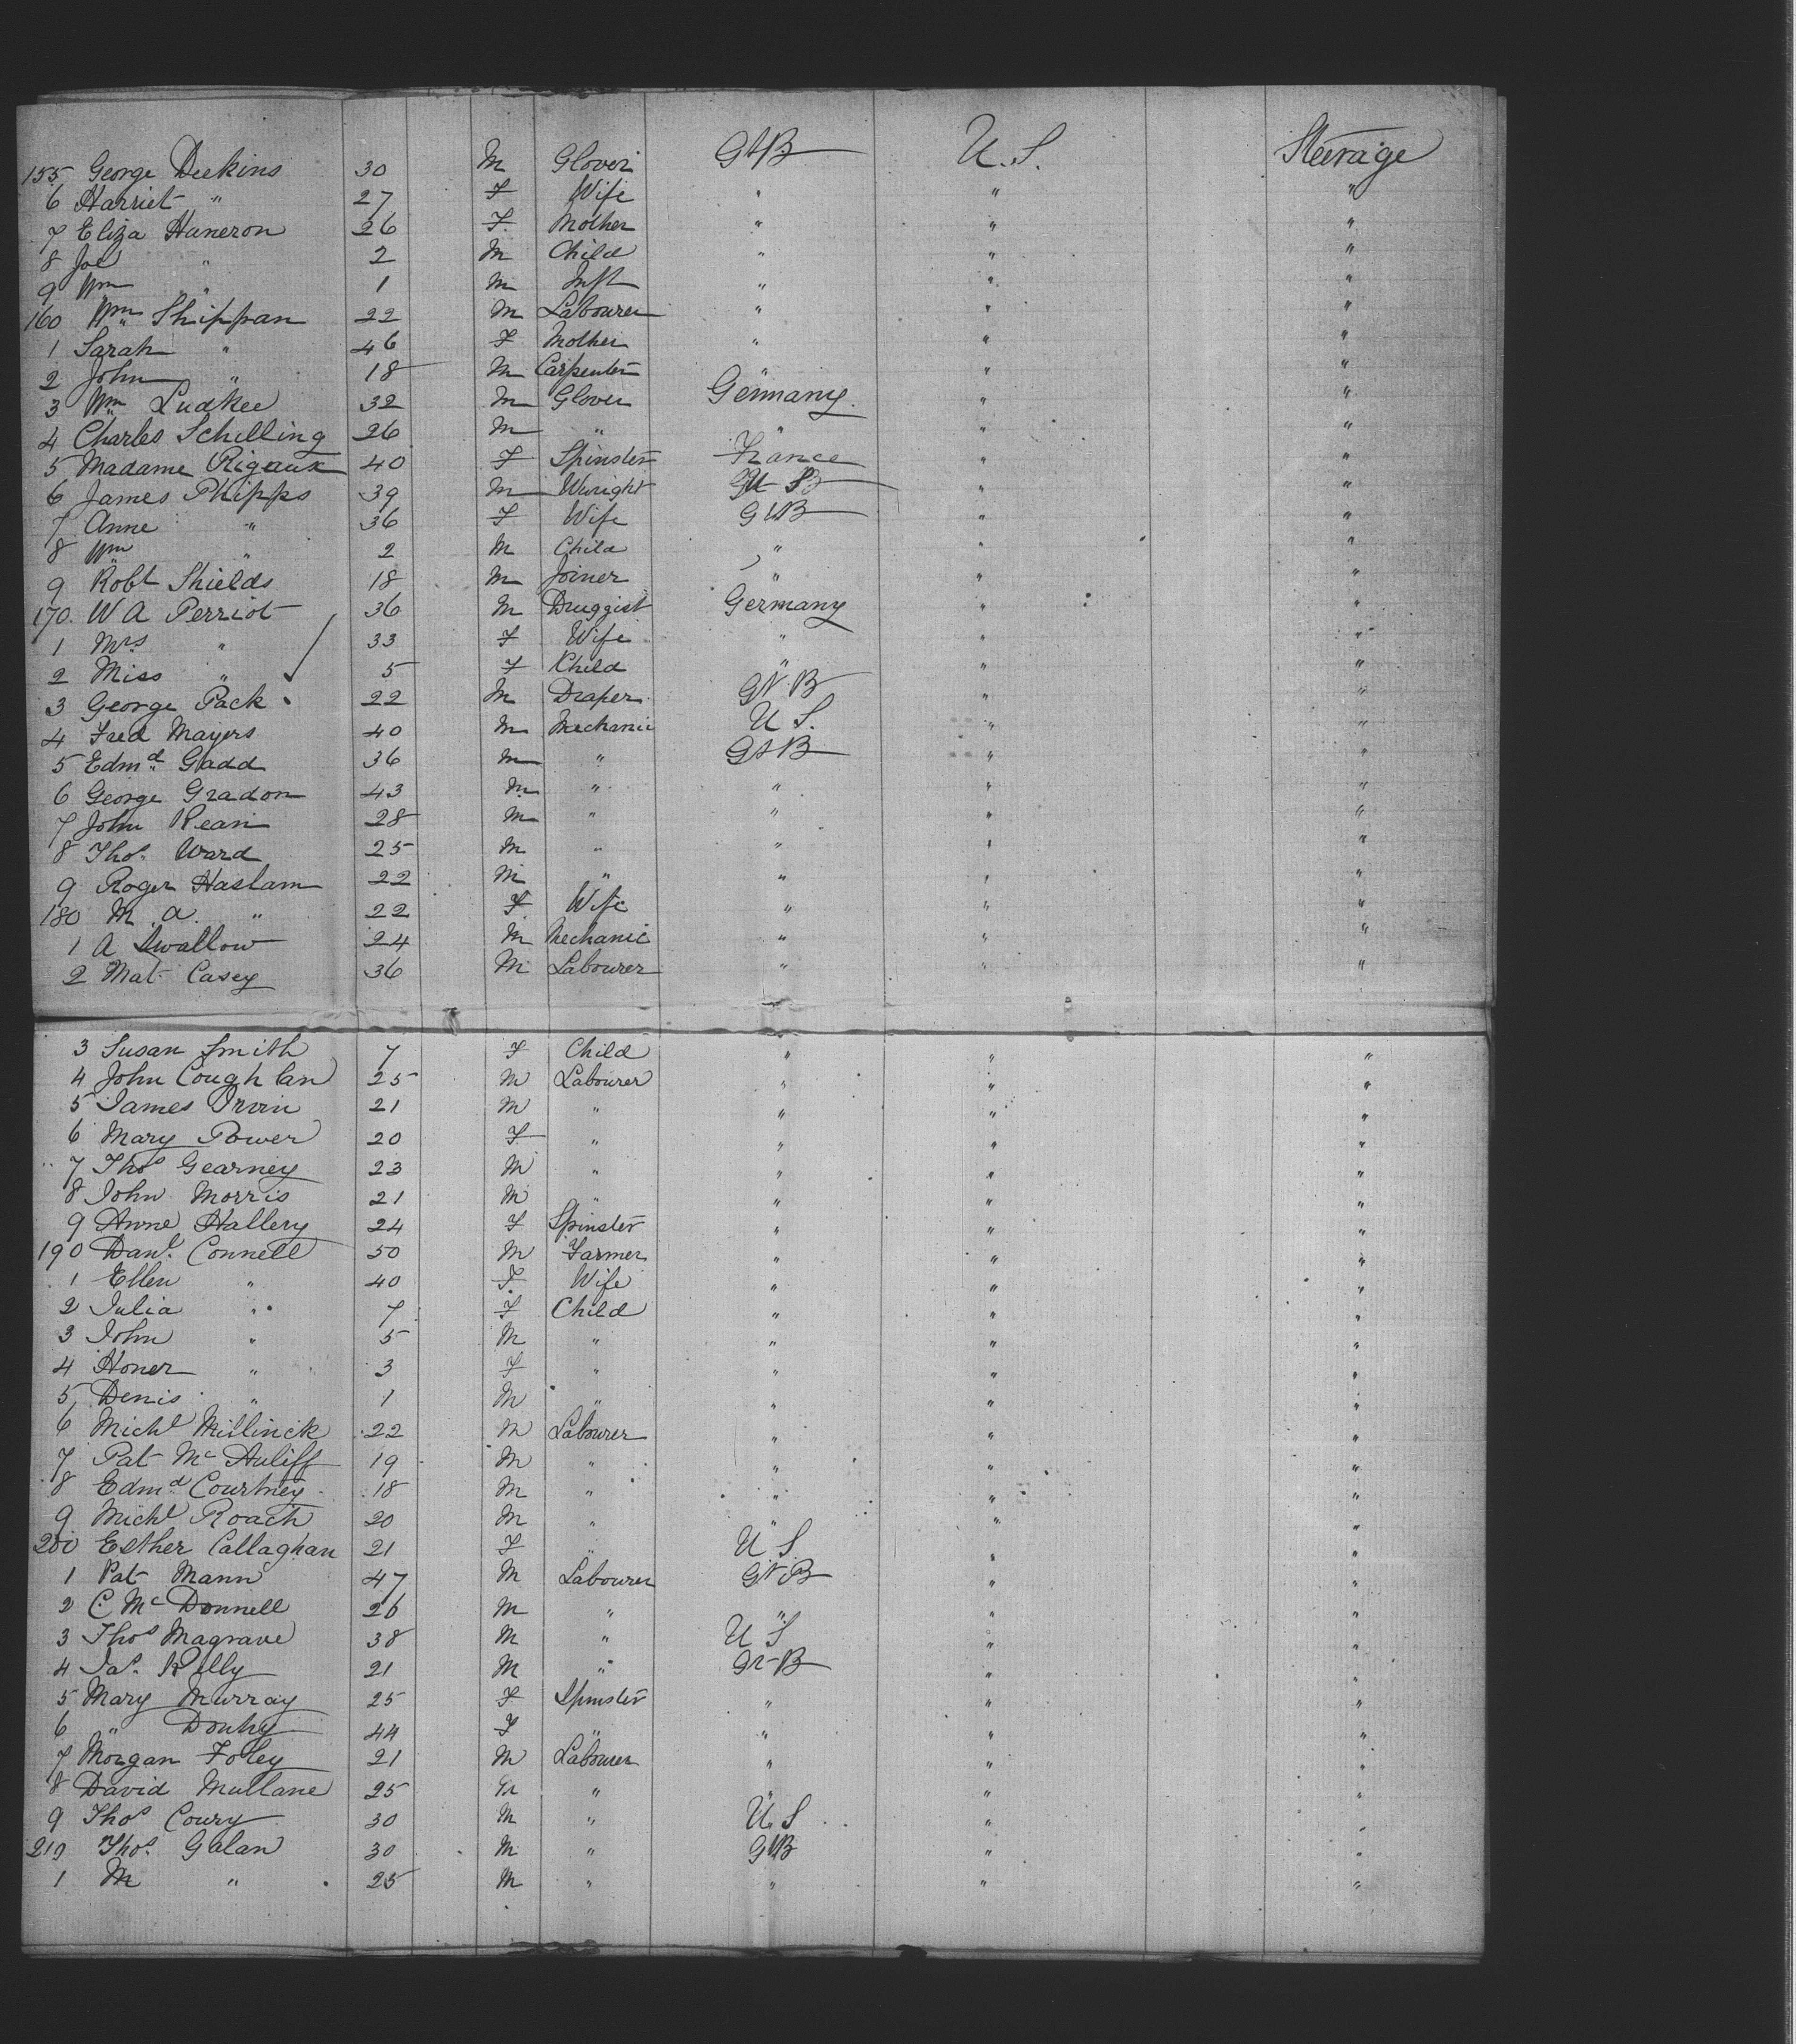 155 George Deekins 30 M Glover GtB U.S. Steerage
6 Harriet " 27 F Wife " " "
7 Eliza Haneron 26 F Mother " " "
8 Joe " 2 M Child " " "
9 Wm " 1 M Inft " " "
160 Wm Shippan 22 M Labourer " " "
1 Sarah " 46 F Mother " " "
2 John " 18 M Carpenter " " "
3 Wm Ludkee 32 M Glover Germany. " "
4 Charles Schelling 26 M " " " "
5 Madame Rigaux 40 F Spinster France " "
6 James Phipps 39 M Wwright B " "
7 Anne " 36 F Wife GtB " "
8 Wm " 2 M Child " " "
9 Robt Shields 18 M Joiner " " "
170. W A Perriot 36 M Druggist Germany " "
1 Mrs " 33 F Wife " " "
2 Miss " 5 F Child " " "
3 George Pack 22 M Draper Gt B " "
4 Fred Mayers 40 M Mechanic U S. " "
5 Edmd Gadd 36 M " GtB " "
6 George Gradon 43 M " " " "
7 John Kean 28 M " " " "
8 Thos. Ward 25 M " " " "
9 Roger Haslam 22 M " " " "
180 M. A. " 22 F Wife " " "
1 A Swallow 24 M Mechanic " " "
2 Mat Casey 36 M Labourer " " "
3 Susan Smith 7 F Child " " "
4 John Coughlan 25 M Labourer " " "
5 James Irvin 21 M " " " "
6 Mary Power 20 F " " " "
7 Thos Gearney 23 M " " " "
8 John Morris 21 M " " " "
9 Anne Hallery 24 F Spinster " " "
190 Danl. Connell 50 M Farmer " " "
1 Ellen " 40 F Wife " " "
2 Julia " 7 F Child " " "
3 John " 5 M " " " "
4 Honer " 3 F " " " "
5 Denis " 1 M " " " "
6 Michl Millinick 22 M Labourer " " "
7 Pat McAuliff 19 M " " " "
8 Edmd Courtney 18 M " " " "
9 Michl Roach 20 M " " " "
200 Esther Callaghan 21 F " U S " "
1 Pat Mann 47 M Labourer Gt B " "
2 C. McDonnell 26 M " " " "
3 Thos Magrave 38 M " U S " "
4 Jas. Kelly 21 M " Gr B " "
5 Mary Murray 25 F Spinster " " "
6 " Douhy 44 F " " " "
7 Morgan Foley 21 M Labourer " " "
8 David Mullane 25 M " " " "
9 Thos Coury 30 M " U.S " "
210 Thos. Galan 30 M " GtB " "
1 M " 25 M " " " "